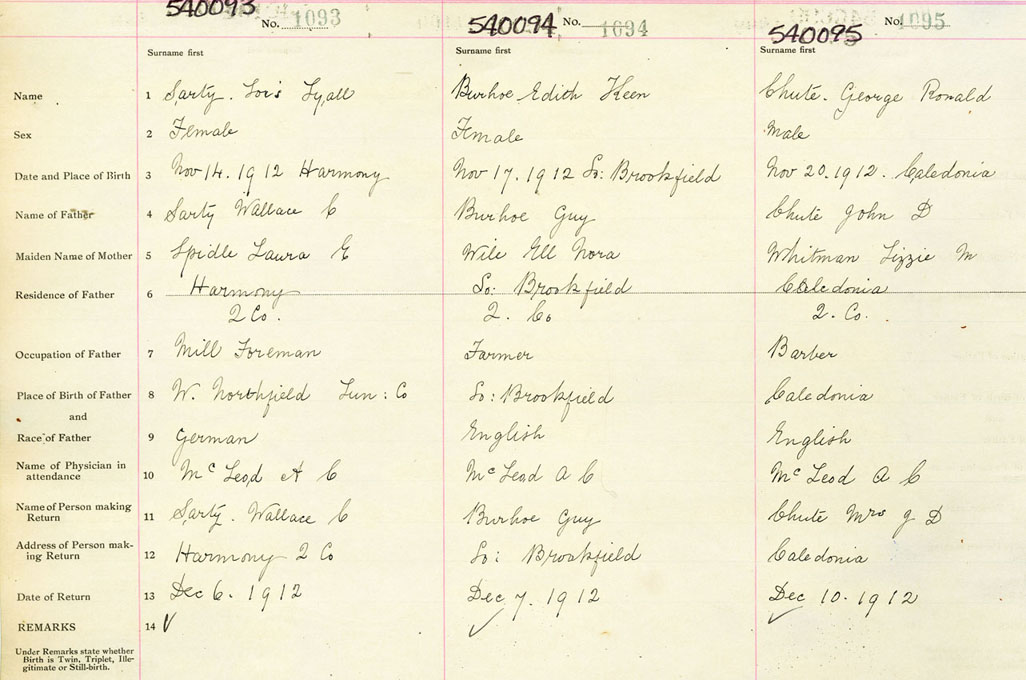 540093 No. 1093 540094 No. 1094 540095 No. 1095
Surname first Surname first Surname first
Name 1 Sarty. Lois Lyall Burhoe Edith Keen Chute. George Ronald
Sex 2 Female Female Male
Date and Place of Birth 3 Nov 14. 1912 Harmony Nov 17. 1912 So: Brookfield Nov 20. 1912. Caledonia
Name of Father 4 Sarty Wallace C Burhoe Guy Chute John D
Maiden Name of Mother 5 Spidle Laura E Wile Ell Nora Whitman Lizzie M
Residence of Father 6 Harmony So: Brookfield Caledonia
2 Co. 2. Co 2. Co.
Occupation of Father 7 Mill Foreman Farmer Barber
Place of Birth of Father 8 W. Northfield Lun: Co So: Brookfield Caledonia
and
Race of Father 9 German English English
Name of Physician in
attendance 10 Mc Leod A C Mc Leod A C Mc Leod A C
Name of Person making
Return 11 Sarty. Wallace C Burhoe Guy Chute Mrs J D
Address of Person mak-
ing Return 12 Harmony 2 Co So: Brookfield Caledonia
Date of Return 13 Dec 6. 1912 Dec 7. 1912 Dec 10. 1912
REMARKS 14
Under Remarks state whether
Birth is Twin, Triplet, Ille-
gitimate or Still-birth.